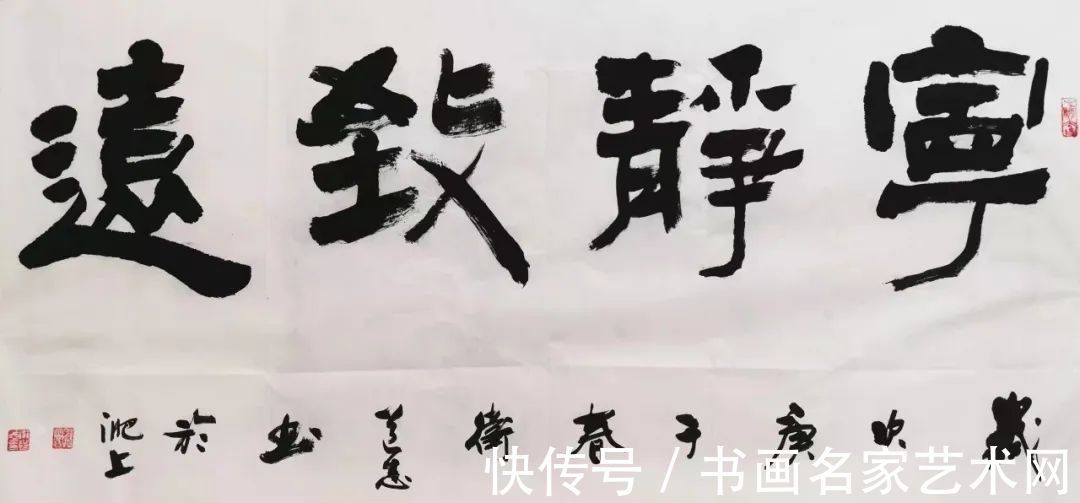 寧靜致遠
歲次庚子春衛书於淝上
快传号 / 书画名家艺术网